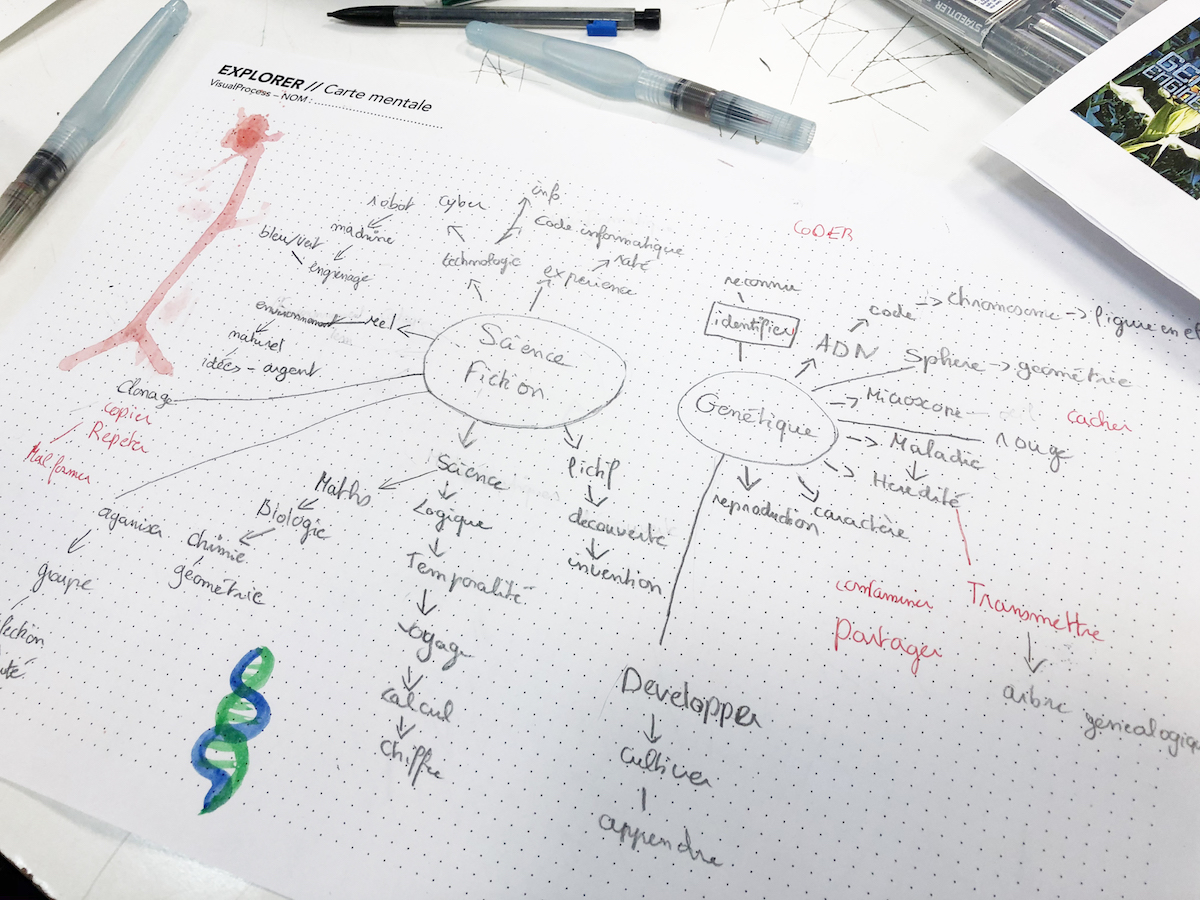 EXPLORER // Carte mentale
VisualProcess – NOM :
STAEDTLER
robot
cyber
info
machine
code informatique
bleu/vert
engrenage
technologie
expérience
raté
CODER
reconnu
identifier
code
chromosome
figure en
ADN
Sphère
géométrie
environnement
réel
naturel
idées - argent
Science
Fiction
Génétique
Microscope
cacher
rouge
Maladie
Hérédité
Clonage
copier
Répéter
Malformer
Science
fictif
Maths
Biologie
chimie
géométrie
Logique
découverte
invention
reproduction
caractère
groupe
Temporalité
voyage
calcul
chiffre
contaminer
Transmettre
Partager
arbre généalogique
Developper
cultiver
apprendre